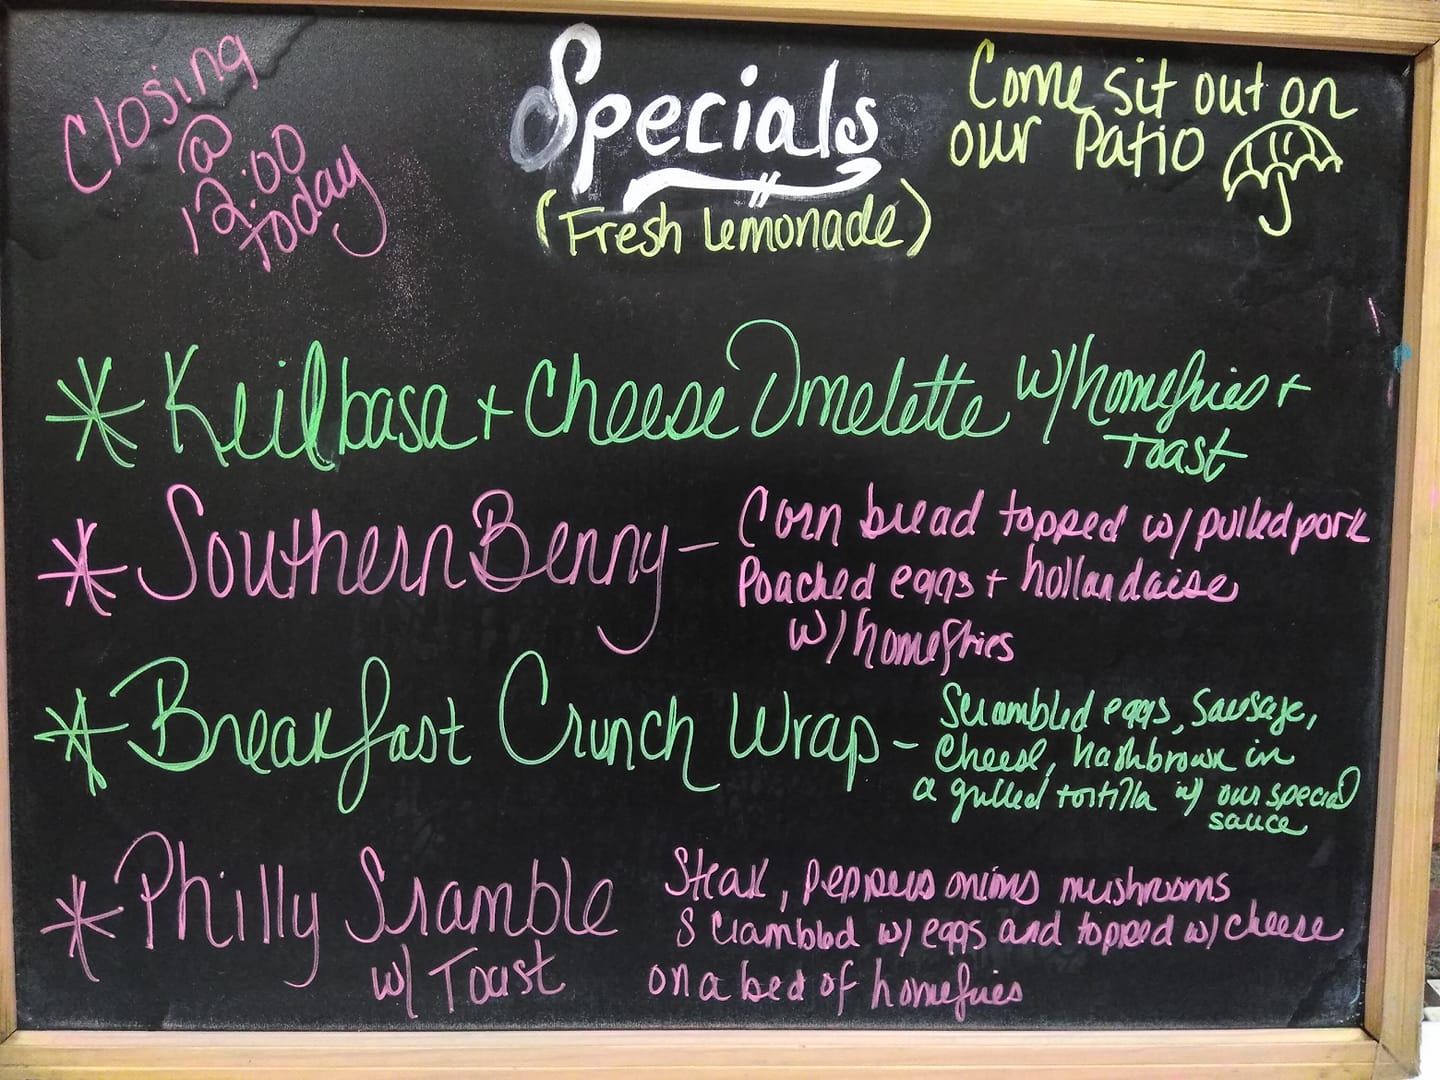 Closing
@
12:00
today
Specials
(Fresh Lemonade)
Come sit out on
our Patio
* Keilbasa + Cheese Omelette w/ homefries +
Toast
* Southern Benny - Corn bread topped w/ pulled pork
Poached eggs + hollandaise
w/ homefries
* Breakfast Crunch Wrap - Scrambled eggs, Sausage,
Cheese, hashbrown in
a grilled tortilla w/ our special
sauce
* Philly Sramble Steak, peppers onions mushrooms
w/ Toast
Scrambled w/ eggs and topped w/ cheese
on a bed of homefries